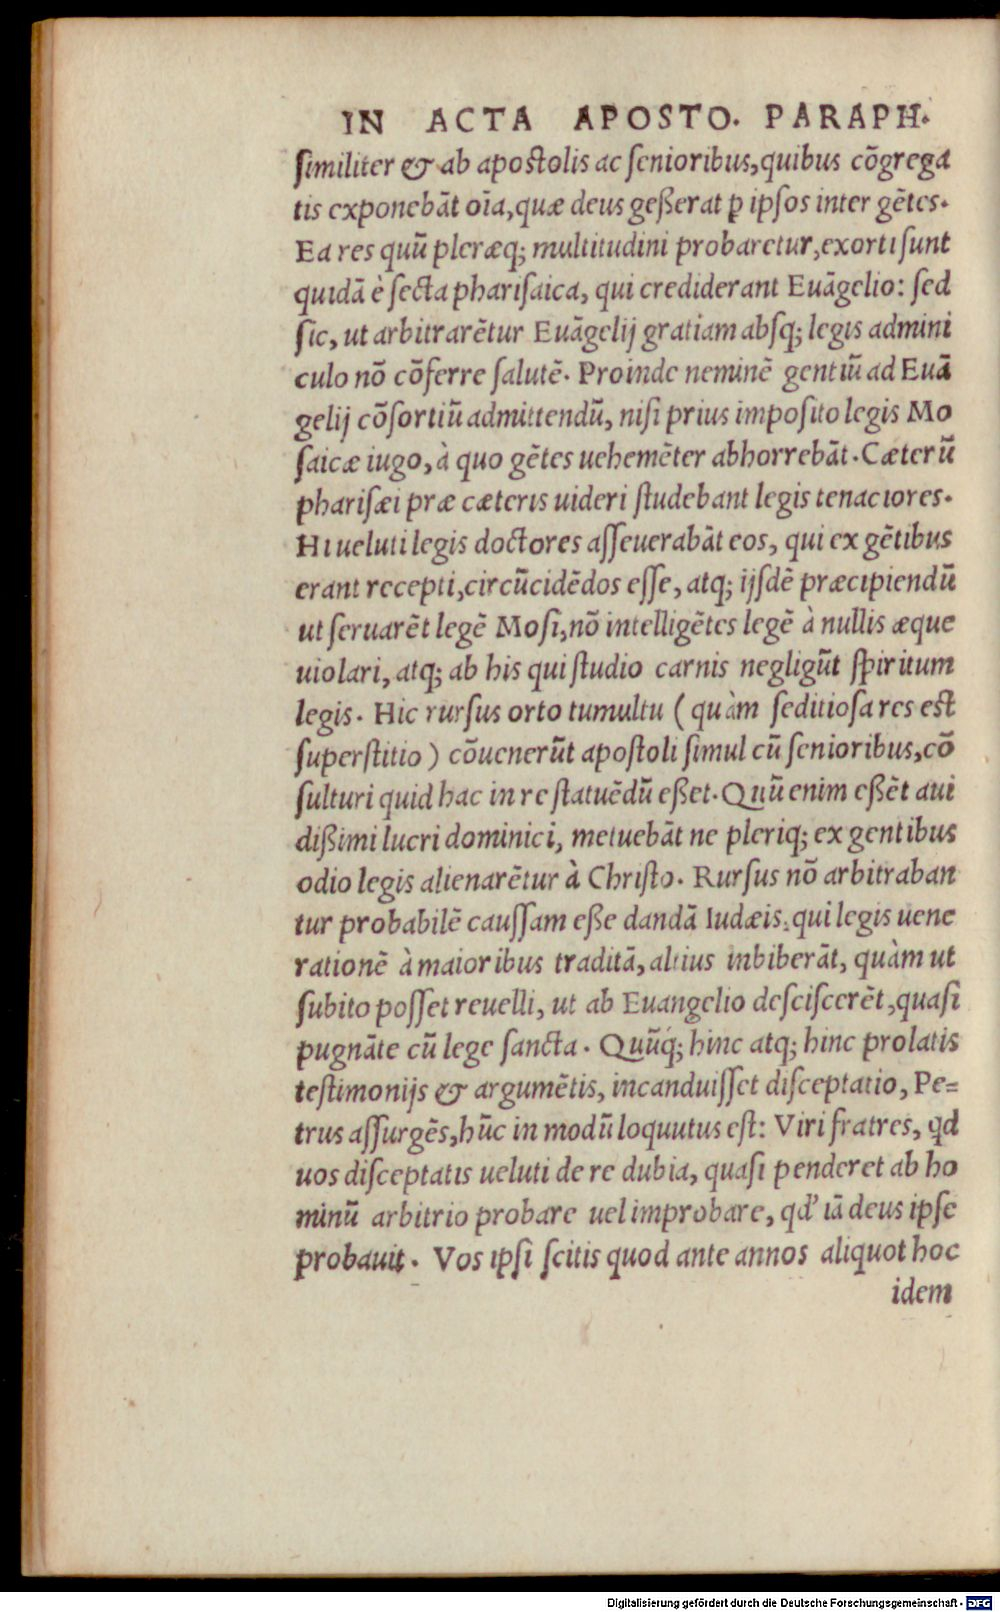 IN ACTA APOSTO. PARAPH.
ſimiliter & ab apoſtolis ac ſenioribus,quibus cõgrega
tis exponebãt oĩa,quæ deus geßerat ꝑ ipſos inter gẽtes.
Ea res quũ pleræq; multitudini probaretur,exorti ſunt
quidã è ſecta phariſaica, qui crediderant Euãgelio: ſed
ſic, ut arbitrarẽtur Euãgelij gratiam abſq; legis admini
culo nõ cõferre ſalutẽ. Proinde neminẽ gentiũ ad Euã
gelij cõſortiũ admittendũ, niſi prius impoſito legis Mo
ſaicæ iugo, à quo gẽtes uehemẽter abhorrebãt. Cæterũ
phariſæi præ cæteris uideri ſtudebant legis tenaciores.
Hi ueluti legis doctores aſſeuerabãt eos, qui ex gẽtibus
erant recepti,circũcidẽdos eſſe, atq; ijſdẽ præcipiendũ
ut ſeruarẽt legẽ Moſi,nõ intelligẽtes legẽ à nullis æque
uiolari, atq; ab his qui ſtudio carnis negligũt ſpiritum
legis. Hic rurſus orto tumultu ( quàm ſeditioſa res eſt
ſuperſtitio ) cõuenerũt apoſtoli ſimul cũ ſenioribus,cõ
ſulturi quid hac in re ſtatuẽdũ eßet. Quũ enim eßẽt aui
dißimi lucri dominici, metuebãt ne pleriq; ex gentibus
odio legis alienarẽtur à Chriſto. Rurſus nõ arbitraban
tur probabilẽ cauſſam eße dandã Iudæis, qui legis uene
rationẽ à maioribus traditã, altius inbiberãt, quàm ut
ſubito poſſet reuelli, ut ab Euangelio deſciſcerẽt,quaſi
pugnãte cũ lege ſancta. Quũq́; hinc atq; hinc prolatis
teſtimonijs & argumẽtis, incanduiſſet diſceptatio, Pe=
trus aſſurgẽs,hũc in modũ loquutus eſt: Viri fratres, qd
uos diſceptatis ueluti de re dubia, quaſi penderet ab ho
minũ arbitrio probare uel improbare, qd' iã deus ipſe
probauit. Vos ipſi ſcitis quod ante annos aliquot hoc
idem
Digitalisierung gefördert durch die Deutsche Forschungsgemeinschaft - DFG